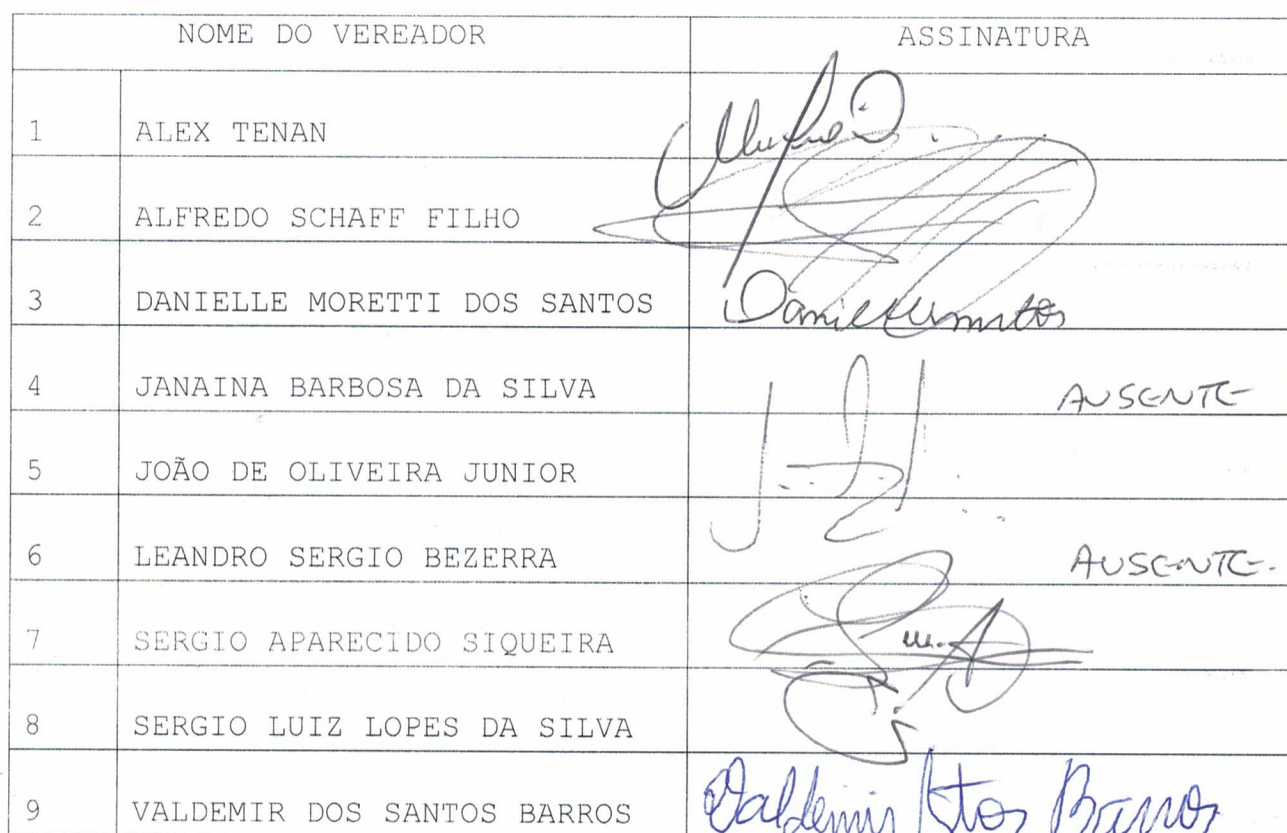 NOME DO VEREADOR ASSINATURA
1 ALEX TENAN
2 ALFREDO SCHAFF FILHO
3 DANIELLE MORETTI DOS SANTOS
4 JANAINA BARBOSA DA SILVA AUSENTE
5 JOÃO DE OLIVEIRA JUNIOR
6 LEANDRO SERGIO BEZERRA AUSENTE.
7 SERGIO APARECIDO SIQUEIRA
8 SERGIO LUIZ LOPES DA SILVA
9 VALDEMIR DOS SANTOS BARROS Valdemir Stos Barros